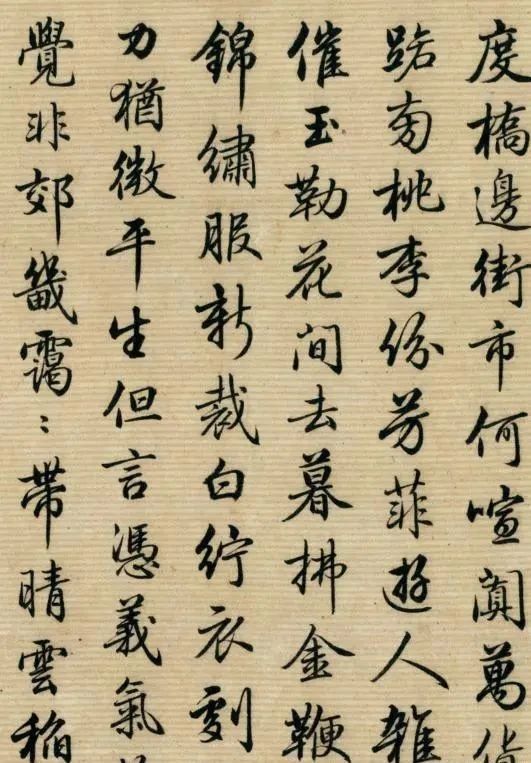 度橋邊街市何喧闐萬貨
路旁桃李紛芳菲遊人雜
催玉勒花間去暮拂金鞭
錦繡服新裁白紵衣
力猶微平生但言憑義氣
覺非郊畿靄〻帶晴雲稻